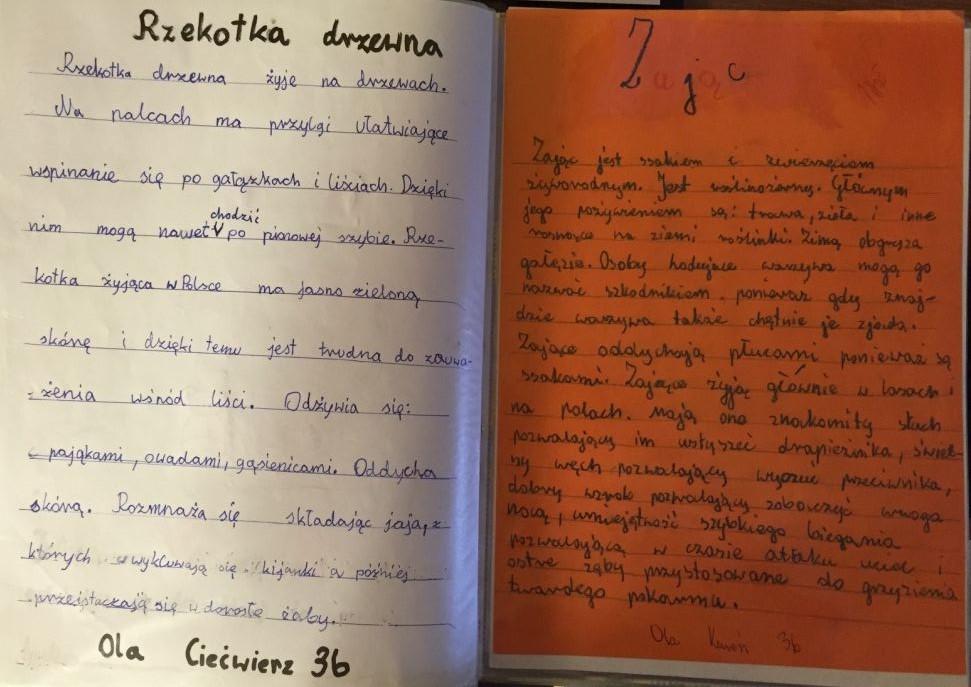 Rzekotka drzewna
Rzekotka drzewna żyje na drzewach.
Na palcach ma przylgi ułatwiające
wspinanie się po gałązkach i liściach. Dzięki
nim mogą nawet chodzić po pionowej szybie. Rze-
kotka żyjąca w Polsce ma jasno zieloną
skórę i dzięki temu jest trudna do zauwa-
-żenia wśród liści. Odżywia się:
pająkami, owadami, gąsienicami. Oddycha
skórą. Rozmnaża się składając jaja, z
których wykluwają się kijanki a później
przeistaczają się w dorosłe żaby.
Ola Ciećwierz 3b
Zając
Zając jest ssakiem i zwierzęciem
żyworodnym. Jest roślinożerny. Głównym
jego pożywieniem są: trawa, zioła i inne
rosnące na ziemi roślinki. Zimą obgryza
gałęzie. Osoby hodujące warzywa mogą go
nazwać szkodnikiem, ponieważ gdy znaj-
dzie warzywa także chętnie je zjada.
Zające oddychają płucami ponieważ są
ssakami. Zające żyją głównie w lasach i
na polach. Mają one znakomity słuch
pozwalający im usłyszeć drapieżnika, świet-
ny węch pozwalający wyczuć przeciwnika,
dobry wzrok pozwalający zobaczyć wroga
nocą, umiejętność szybkiego biegania
pozwalającą w czasie ataku uciec i
ostre zęby przystosowane do gryzienia
twardego pokarmu.
Ola 3b